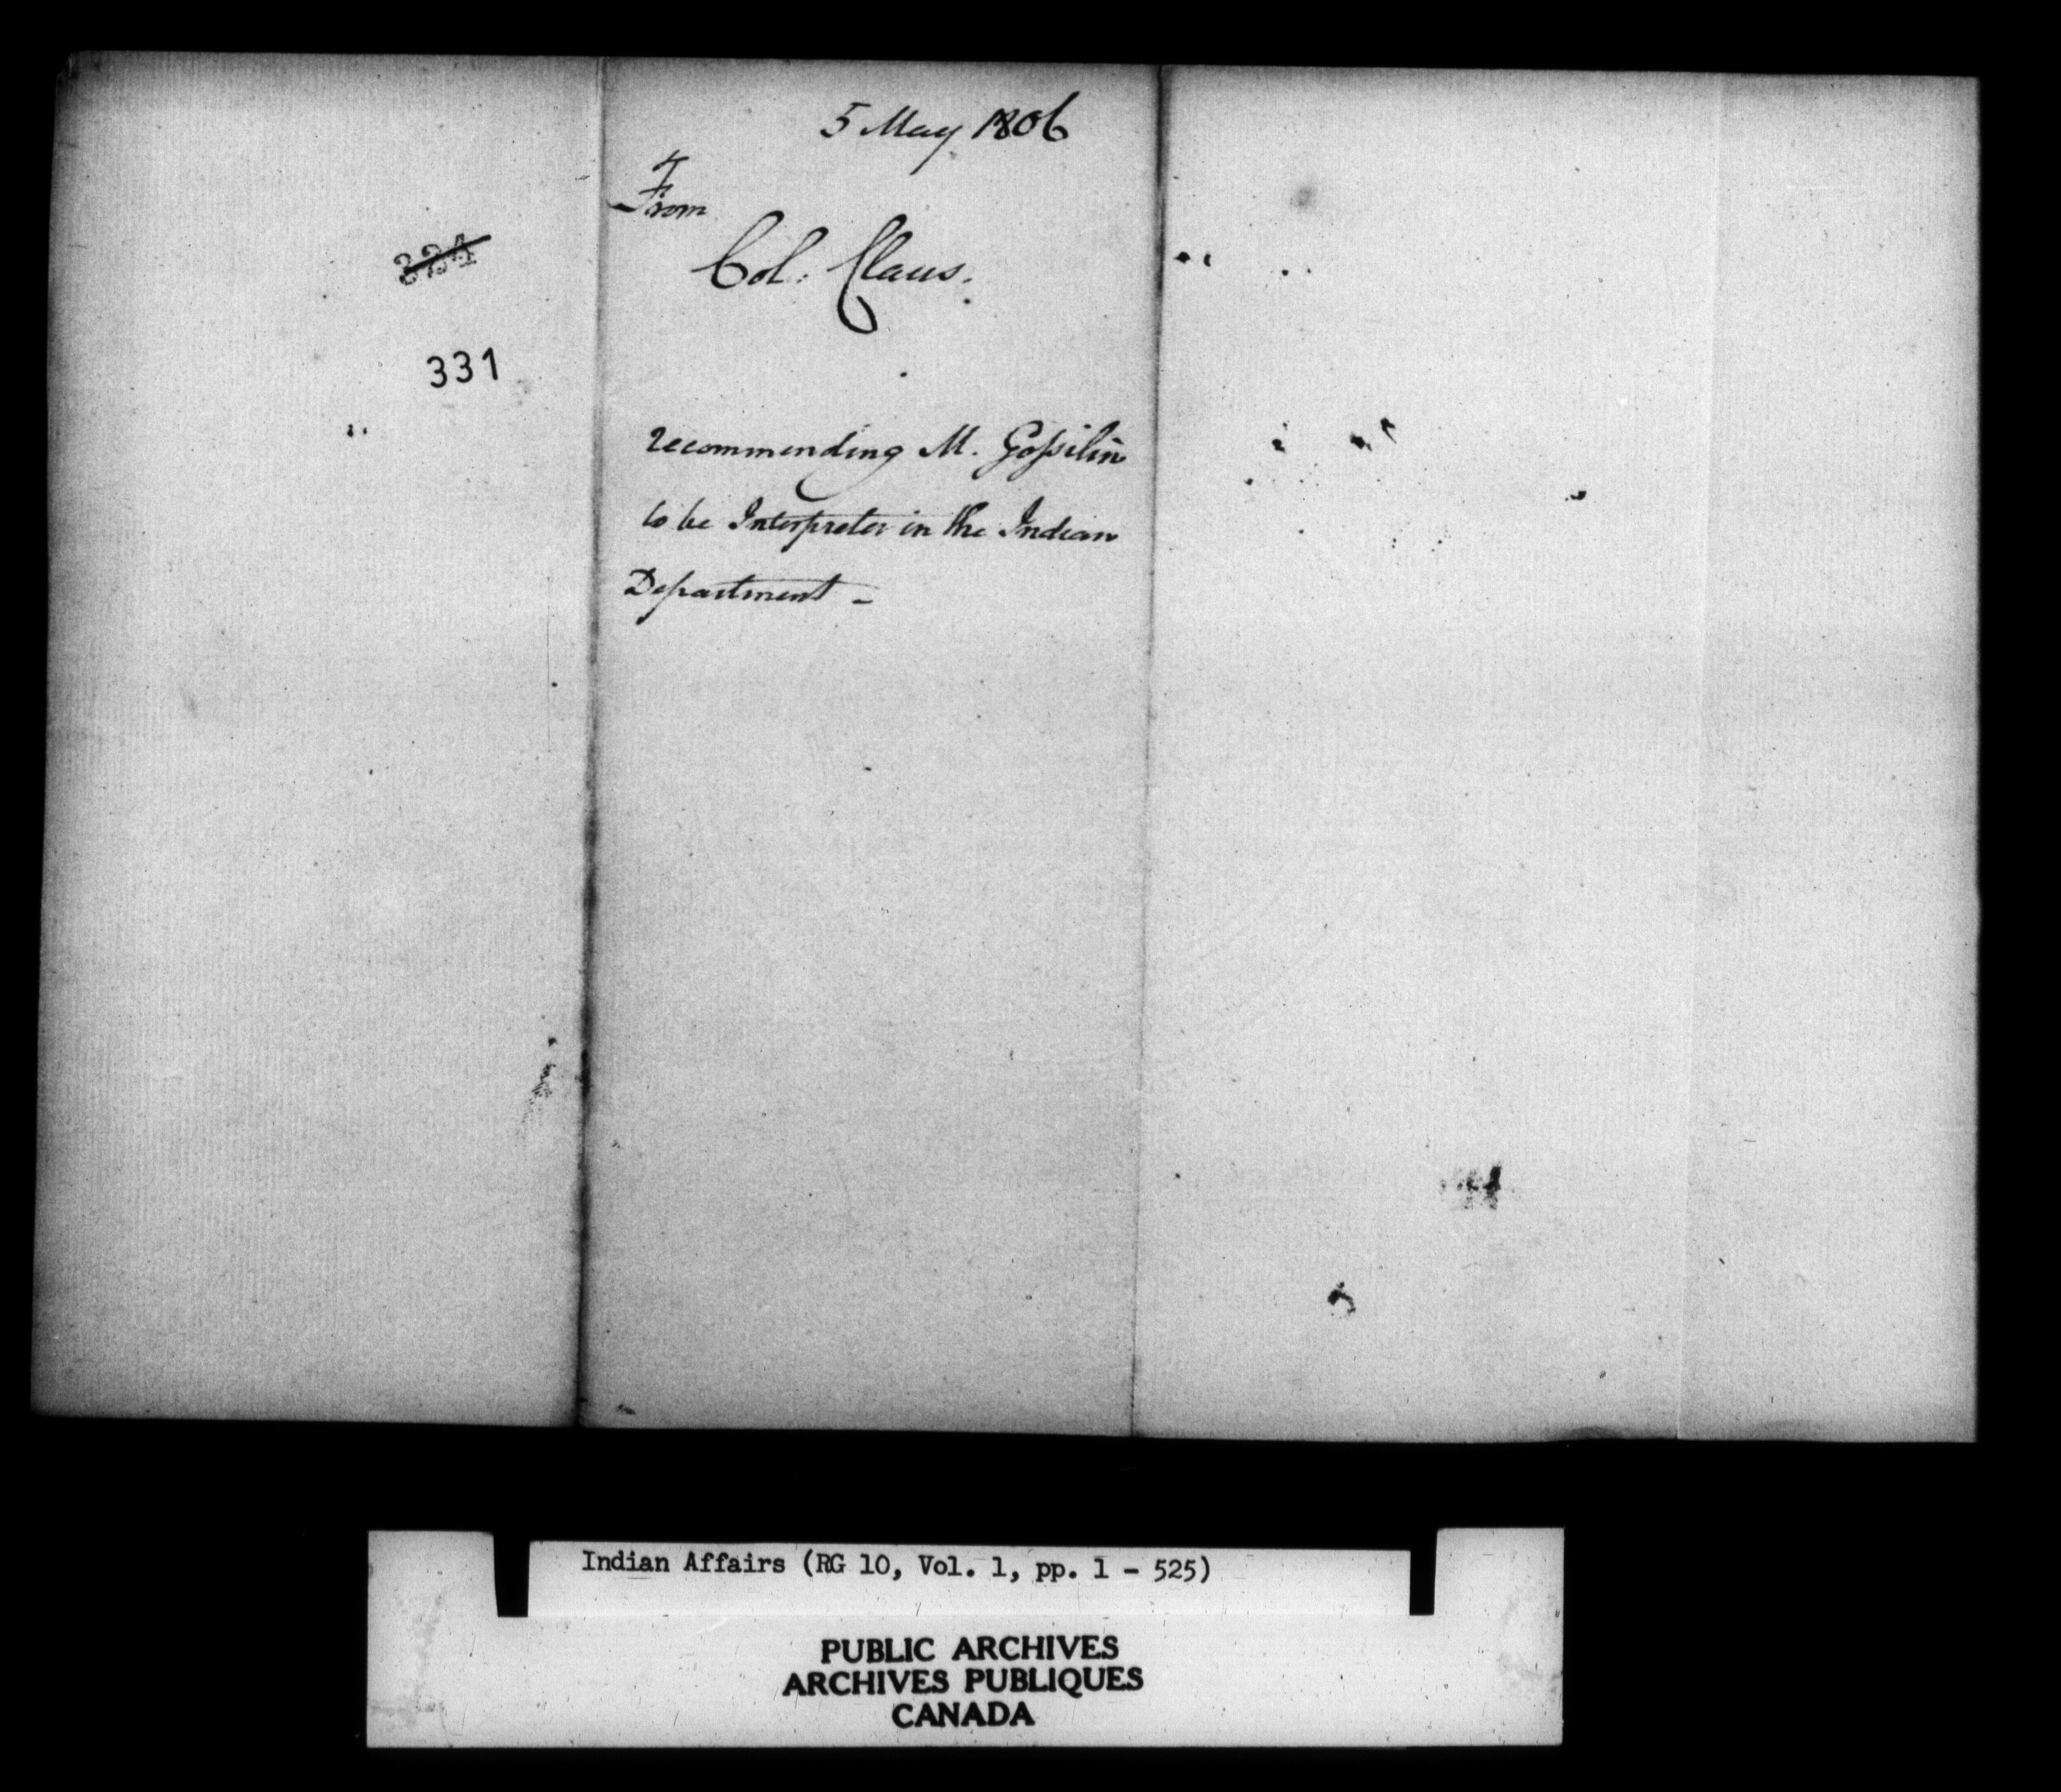 5 May 1806
From
Col: Claus.
324
331
recommending M. Goſsilin
to be Interpreter in the Indian
Department –
Indian Affairs (RG 10, Vol. 1, pp. 1 - 525)
PUBLIC ARCHIVES
ARCHIVES PUBLIQUES
CANADA